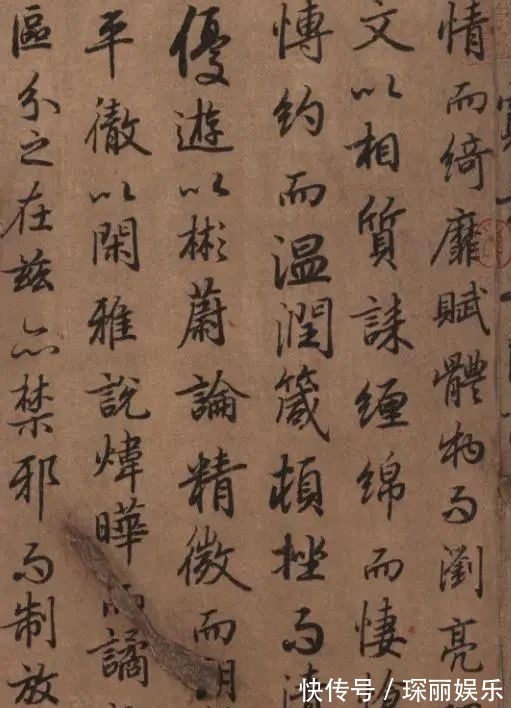 情而綺靡賦體物而瀏亮
文以相質誄纏綿而悽
愽約而温潤箴頓挫而
優遊以彬蔚論精微而朗
平徹以閑雅說煒曄而譎
區分之在兹亦禁邪而制放
快传号/琛丽娱乐